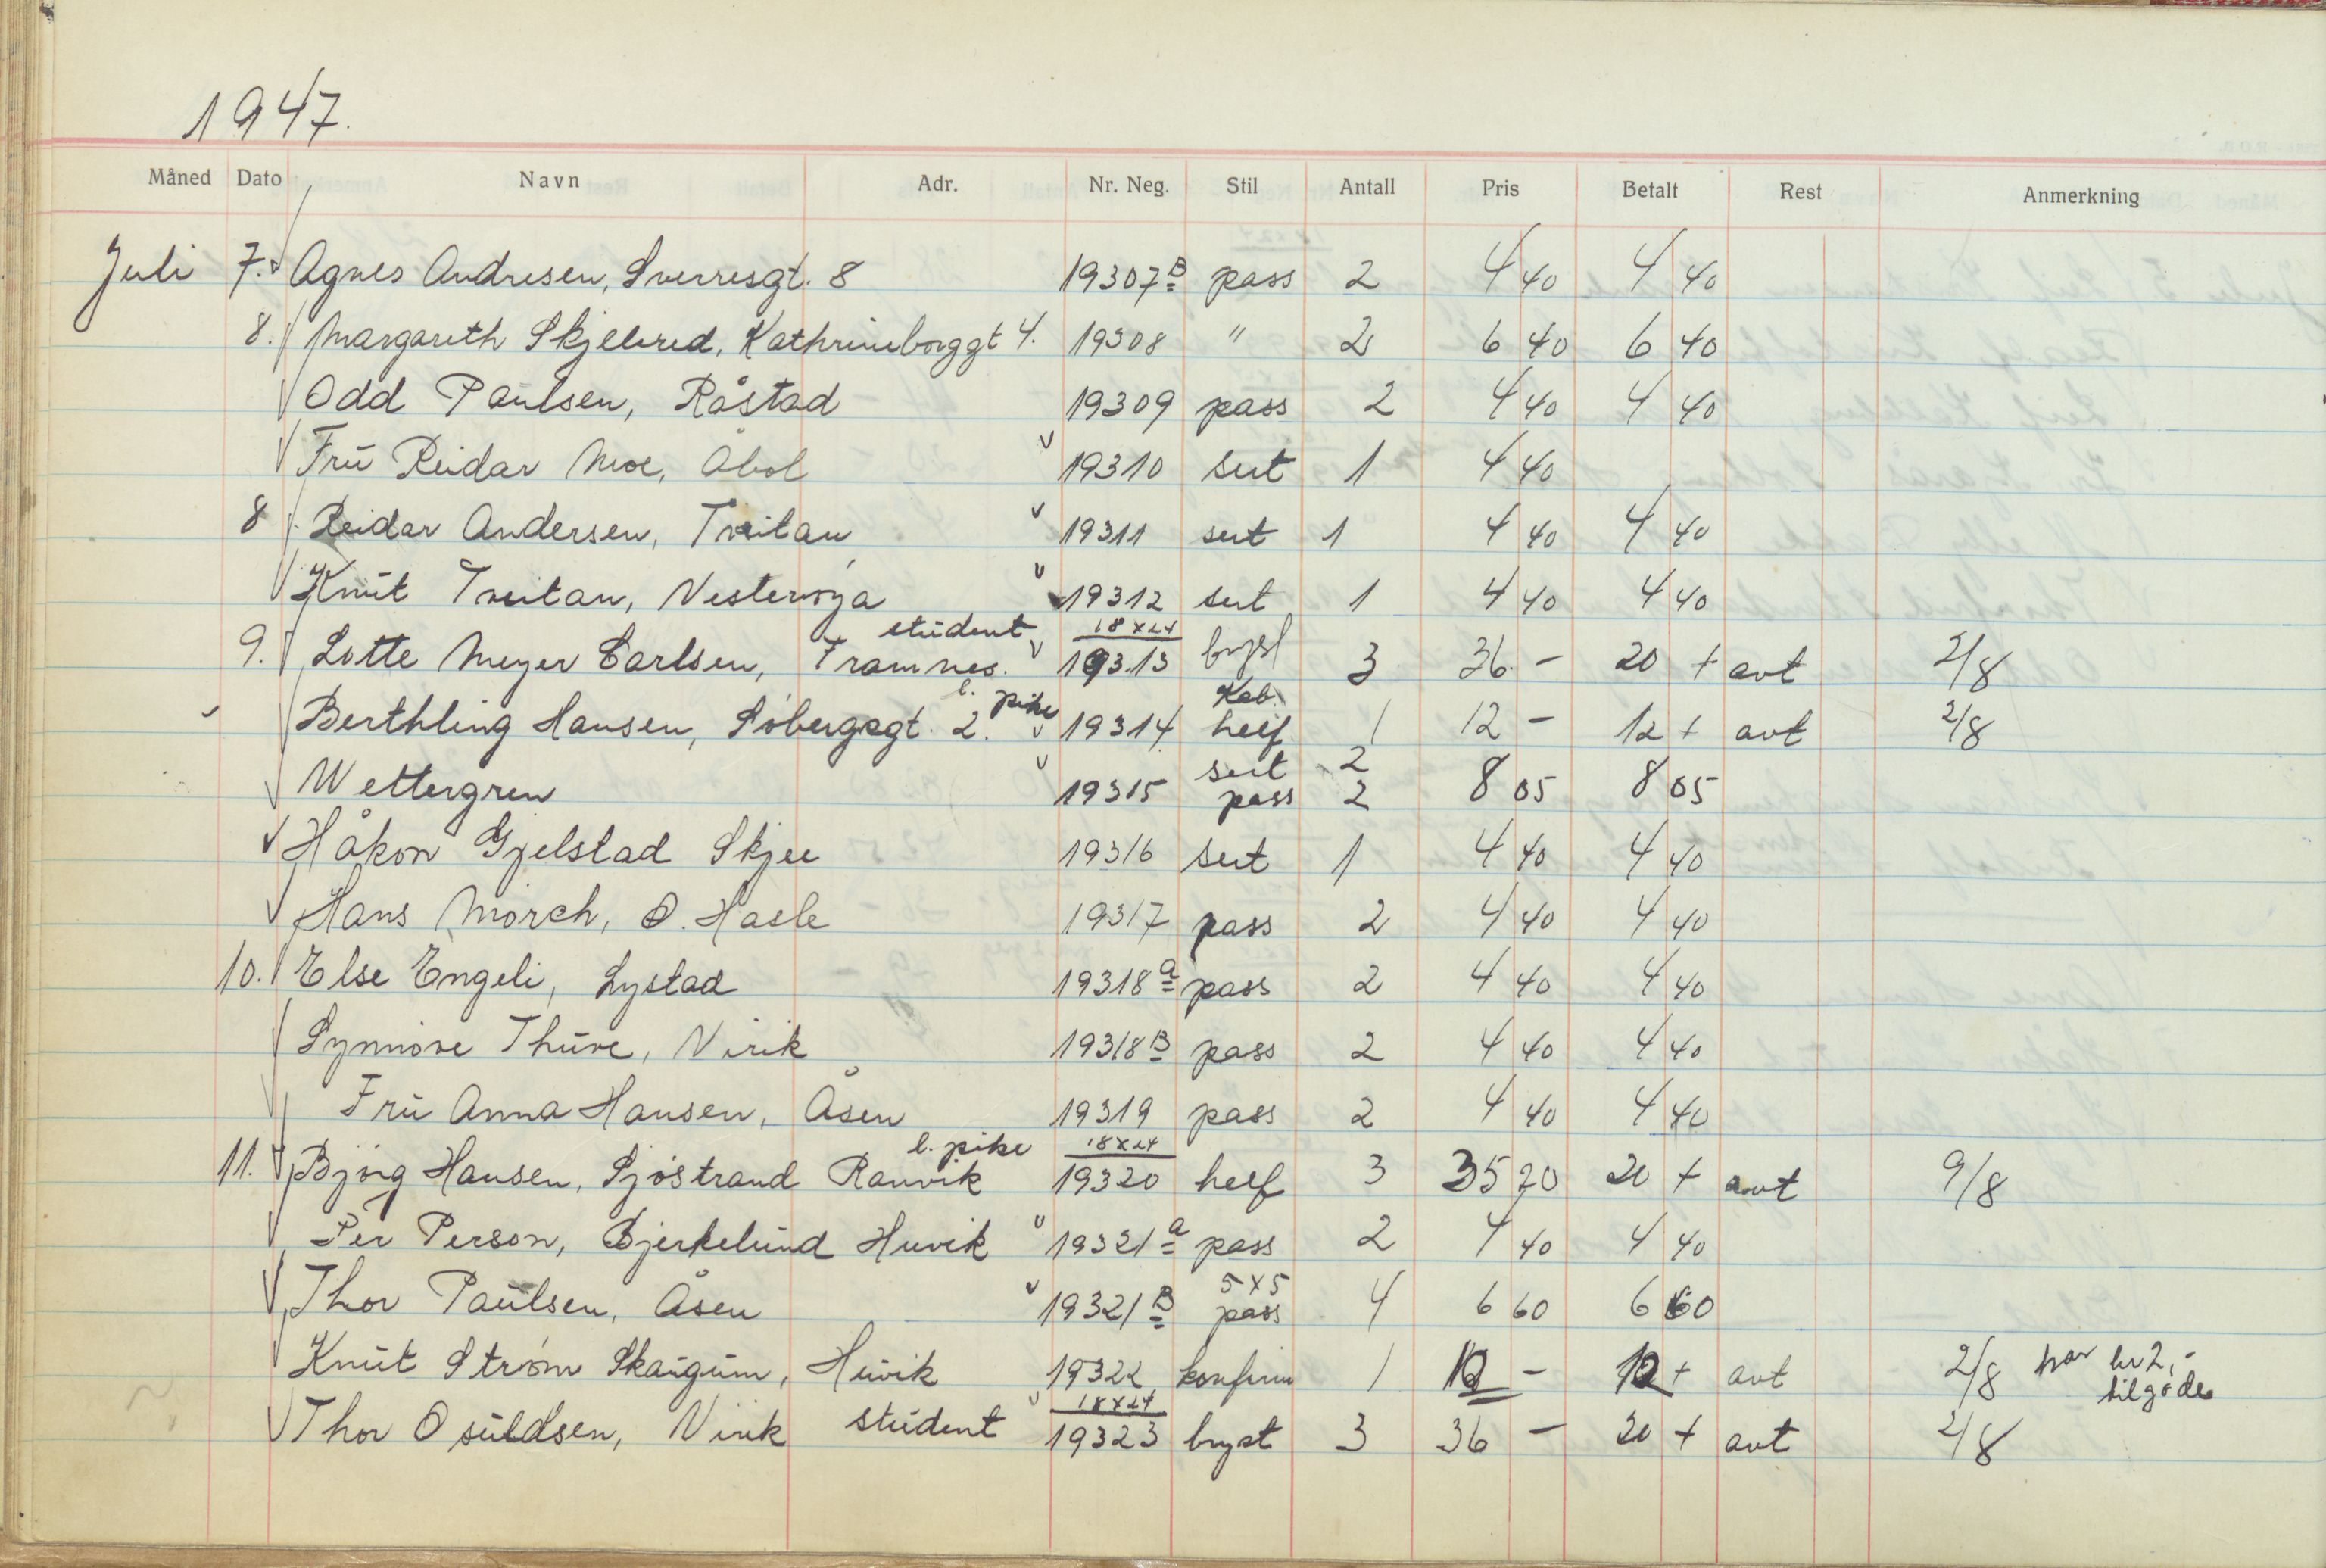 1947.
Måned Dato Navn Adr. Nr. Neg. Stil Antall Pris Betalt Rest Anmerkning
Juli 7. Agnes Andresen, Sverresgt. 8 19307B pass 2 4 40 4 40
8. Margareth Skjelvred, Kathrineborggt 4. 19308 " 2 6 40 6 40
Odd Paulsen, Råstad 19309 pass 2 4 40 4 40
Fru Reidar Moe, Åbol 19310 sert 1 4 40
8 Reidar Andersen, Tveitan 19311 sert 1 4 40 4 40
Knut Tveitan, Vesterøya 19312 sert 1 4 40 4 40
student 18x24
9. Lotte Meyer Carlsen, Framnes. 19313 bryst 3 36 - 20 + avt 2/8
l. pike Kab.
Berthling Hansen, Søbergsgt. 2. 19314 helf 1 12 - 12 + avt 2/8
sert 2
Wettergren 19315 pass 2 8 05 8 05
Håkon Gjelstad Skjee 19316 sert 1 4 40 4 40
Hans Mørch, Ø. Hasle 19317 pass 2 4 40 4 40
10. Else Engeli, Lystad 19318a pass 2 4 40 4 40
Synnøve Thuve, Virik 19318B pass 2 4 40 4 40
Fru Anna Hansen, Åsen 19319 pass 2 4 40 4 40
l. pike 18x24
11. Bjørg Hansen, Sjøstrand Ranvik 19320 helf 3 35 20 20 + avt 9/8
Per Person, Bjerkelund Huvik 19321a pass 2 4 40 4 40
5x5
Thor Paulsen, Åsen 19321B pass 4 6 60 6 60
Knut Strøm Skaugum, Huvik 19322 konfirm 1 12 - 12 + avt 2/8 har kr 2,-
tilgode
18x24
Thor Osuldsen, Virik student 19323 bryst 3 36 - 20 + avt 2/8